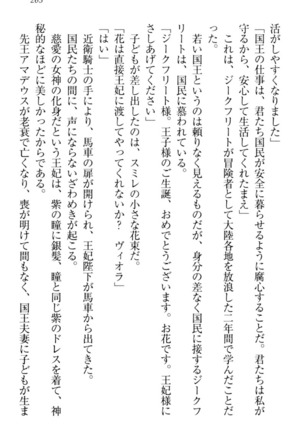 265
活がしやすくなりました」
「国王の仕事は、君たち国民が安全に暮らせるように腐心することだ。君たちは私が
守るから、安心して生活してくれたまえ」
これは、ジークフリートが冒険者として大陸各地を放浪した二年間で学んだことだ。
若い国王というのは頼りなく見えるものだが、身分の差なく国民に接するジークフ
リートは、国民に慕われている。
「ジークフリート様。王子様のご生誕、おめでとうございます。お花です。王妃様に
さしあげてください」
子どもが差し出したのは、スミレの小さな花束だ。
「花は直接王妃に渡してやってくれないか？　ヴィオラ」
「はい」
近衛騎士の手により、馬車の扉が開けられ、王妃陛下が馬車から出てきた。
国民たちの間に、声にならないざわめきが起こる。
慈愛の女神の化身だという王妃は、紫の瞳に銀髪、瞳と同じ紫のドレスを着て、神
秘的なほどに美しかったからである。
先王アマデウスが老衰で亡くなり、喪が明けて間もなく、国王夫妻に子どもが生ま